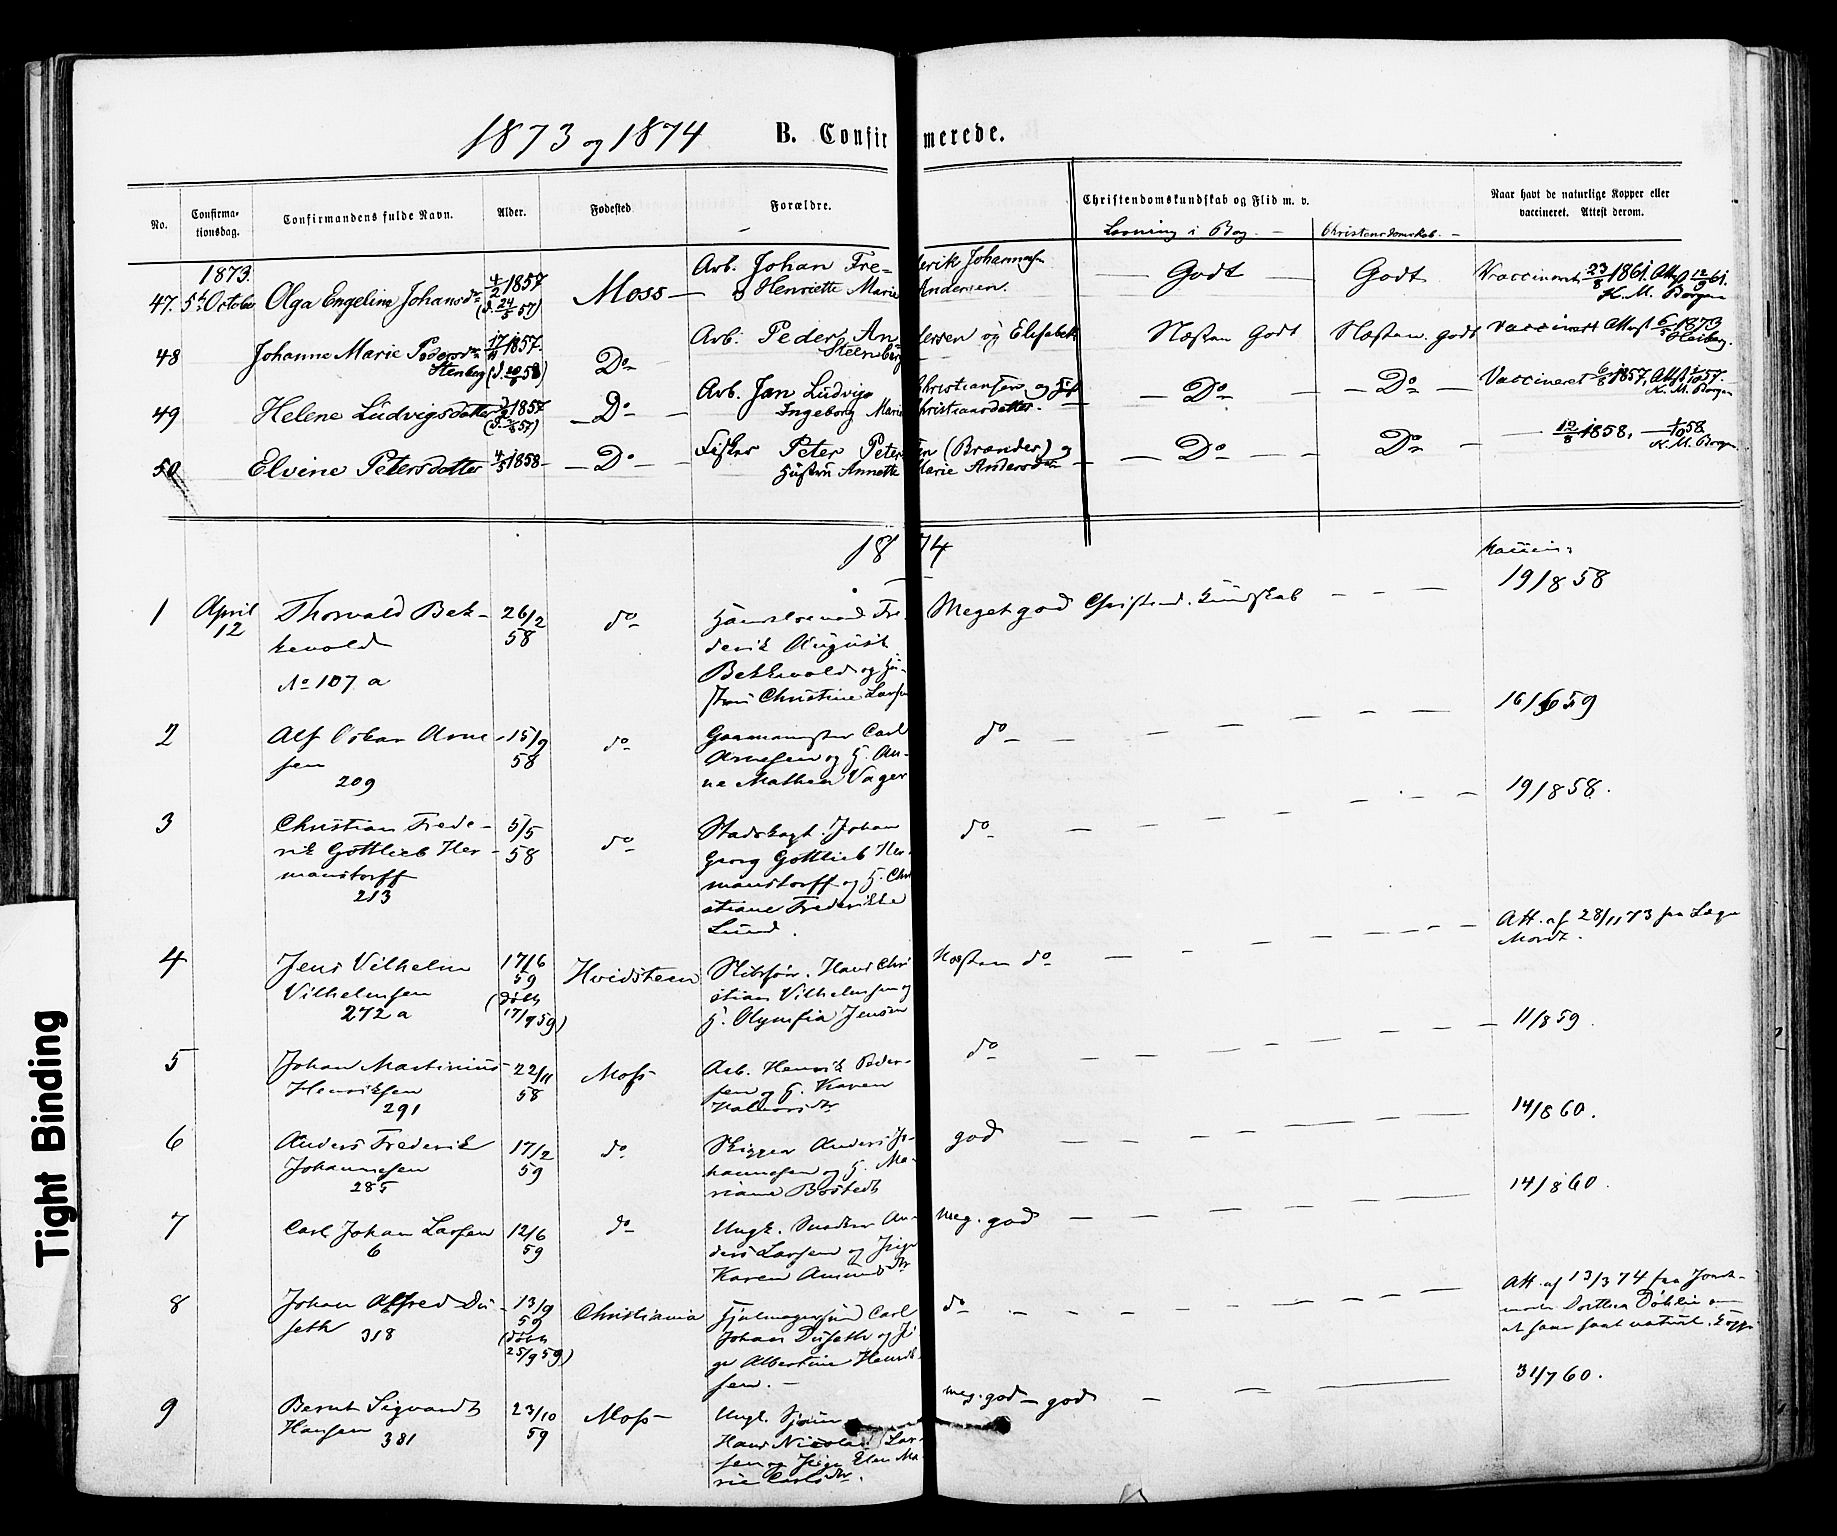 1873 og 1874 B. Confirmerede.
No. Confirmationsdag. Confirmandens fulde Navn. Alder. Fødested Forældre. Christendomskundskab og Flid m. v. Naar havt de naturlige Kopper eller vaccineret. Attest derom.
Læsning i Bog. — Christendomskab. —
1873.
47. 5te October Olga Engeline Johansdtr 4/2 1857 (d. 24/5 57) Moss — Arb. Johan Frederik Johannesen
& Henriette Marie Andersen. — Godt — Godt Vaccineret 23/8 1861. Att. 12/9 61.
K. M. Borgen
48 Johanne Marie Pedersdtr 17/11 1857. Do Arb. Peder Andersen og Elisabeth Næsten Godt Næsten godt Vaccinert Attest 6/5 1873
Stenberg (d. 58) Steenberg — Heiberg.
49 Helene Ludvigsdatter 1857 — Do — Arb. Jan Ludvig Christiansen og
Ingeborg Marie Christiansdatter. — Do — — Do — Vaccineret 6/8 1857, Att. 57.
K. M. Borgen
50 Elvine Petersdatter 4/5 1858 — Do — Fisker Peter Petersen (Brænder) og
Hustru Annette Marie Andersdtr — Do — — Do — — 12/8 1858. — 58
K. M. Borgen
1874
Vaccin:
1 April
12 Thorvald Bek-
kevold
No 107 a 26/2
58 do Handelsmand Fre-
derik August
Bekkevold og Hu-
stru Christine Larsen Meget god Christend. Kundskab — — — 19/8 58
2 Alf Oskar Arne-
sen
209 15/9
58 do Carl
Arnesen og H. An-
ne Mathea Vager do — — — 16/6 59
3 Christian Frede-
rik Gottlieb Her-
manstorff
213 5/5
58 do Stadskapt. Johan
Georg Gottlieb Her-
manstorff og H. Chri
stiane Frederikke
Lund. do — — — 19/8 58.
4 Jens Vilhelm
Vilhelmsen
272 a 17/6
59
(døbt
17/9 59) Hvidsteen Skibsfør. Hans Chri
stian Vilhelmsen og
H. Olymfia Jensen Næsten do — — — Att. af 28/11 73 fra Læge
Mordt.
5 Johan Martinius
Henriksen
291 22/11
58 Moss Arb. Henrik Peder-
sen og H. Karen
Halvorsdtr do — — — 11/8 59.
6 Anders Frederik
Johannesen
285 17/2
59 do Skipper Anders Jo-
hannesen og H. Ma-
riane Bostedt god — — — 14/8 60.
7 Carl Johan Larsen
6 12/6
59 do Ungk. Snedker An-
ders Larsen og Pige
Karen Amundsdtr meg. god — — — 14/8 60.
8 Johan Alfred Du-
seth 318 13/9
59
(døbt
25/9 59) Christiania Hjulmagersvend Carl
Johan Duseth og Pi
ge Albertine Henrik-
sen. — do — — — Att. af 13/3 74 fra Jord-
moder Dorthea Døhlie om
at have havt naturl. Kopp
9 Bernt Sigvardt
Hansen 381 23/10
59 Moss — Ungk. Sjøm
Hans Nicolai Lar-
sen og Pige Elen Ma-
rie Carlsdtr. meg. god — god — — 31/7 60.
Tight Binding